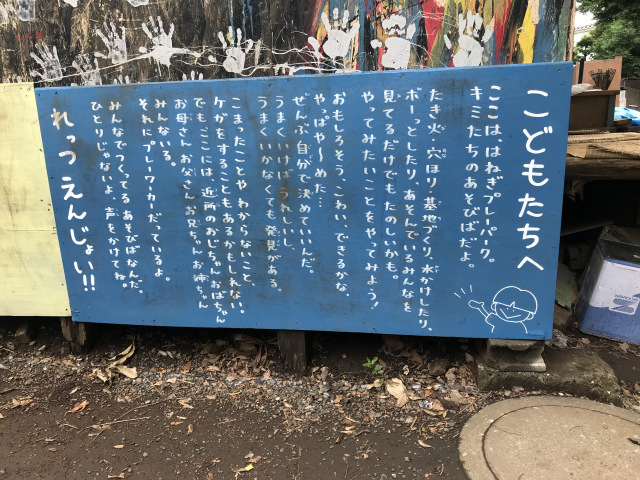 こどもたちへ
ここは はねぎプレーパーク。
キミたちのあそびばだよ。
たき火・穴ほり・基地づくり、水かけしたり、
ボーっとしたり、あそんでいるみんなを
見てるだけでもたのしいかも。
やってみたいことをやってみよう!
おもしろそう、こわい、できるかな、
やっぱや〜めた…
ぜんぶ自分で決めていいんだ。
うまくいけばうれしいし、
うまくいかなくても発見がある。
こまったことや わからないこと、
ケガをすることもあるかもしれない。
でも ここには、近所のおじちゃん おばちゃん
お母さん お父さん お兄ちゃん お姉ちゃん
みんないる。
それにプレーワーカーだっているよ。
みんなでつくってる あそびばなんだ。
ひとりじゃないよ 声をかけてね。
れっつ えんじょい!!